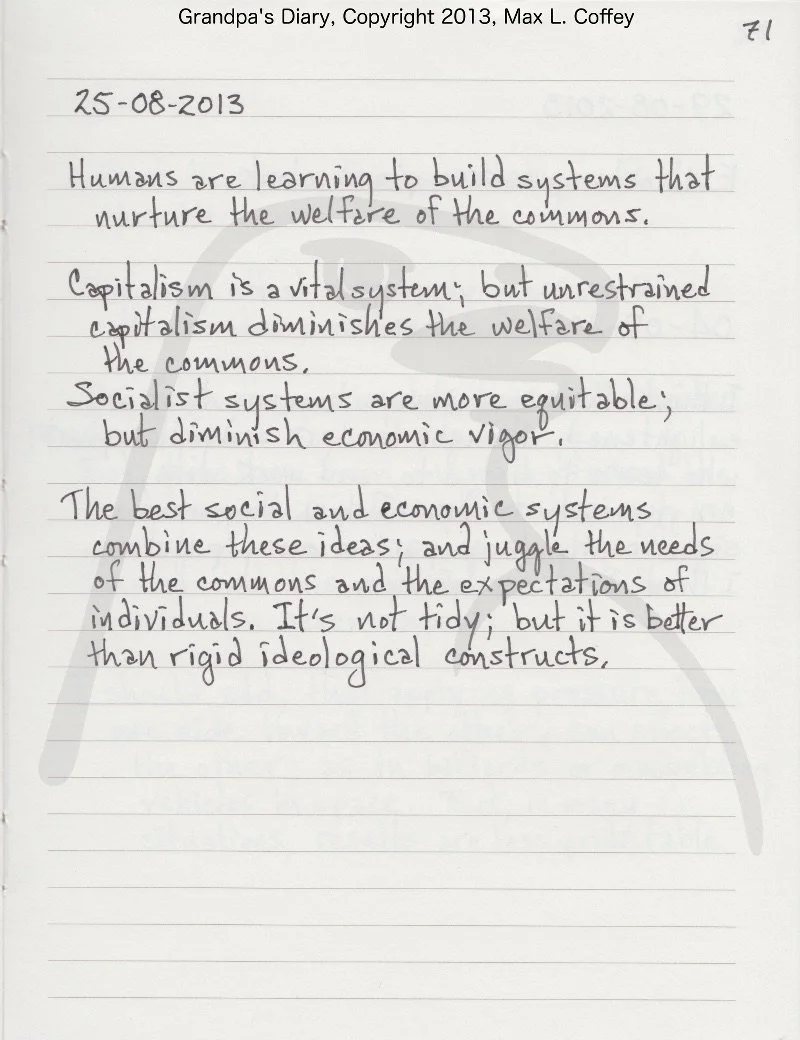 Grandpa's Diary, Copyright 2013, Max L. Coffey
71
25-08-2013
Humans are learning to build systems that
nurture the welfare of the commons.
Capitalism is a vital system; but unrestrained
capitalism diminishes the welfare of
the commons.
Socialist systems are more equitable;
but diminish economic vigor.
The best social and economic systems
combine these ideas; and juggle the needs
of the commons and the expectations of
individuals. It's not tidy; but it is better
than rigid ideological constructs.